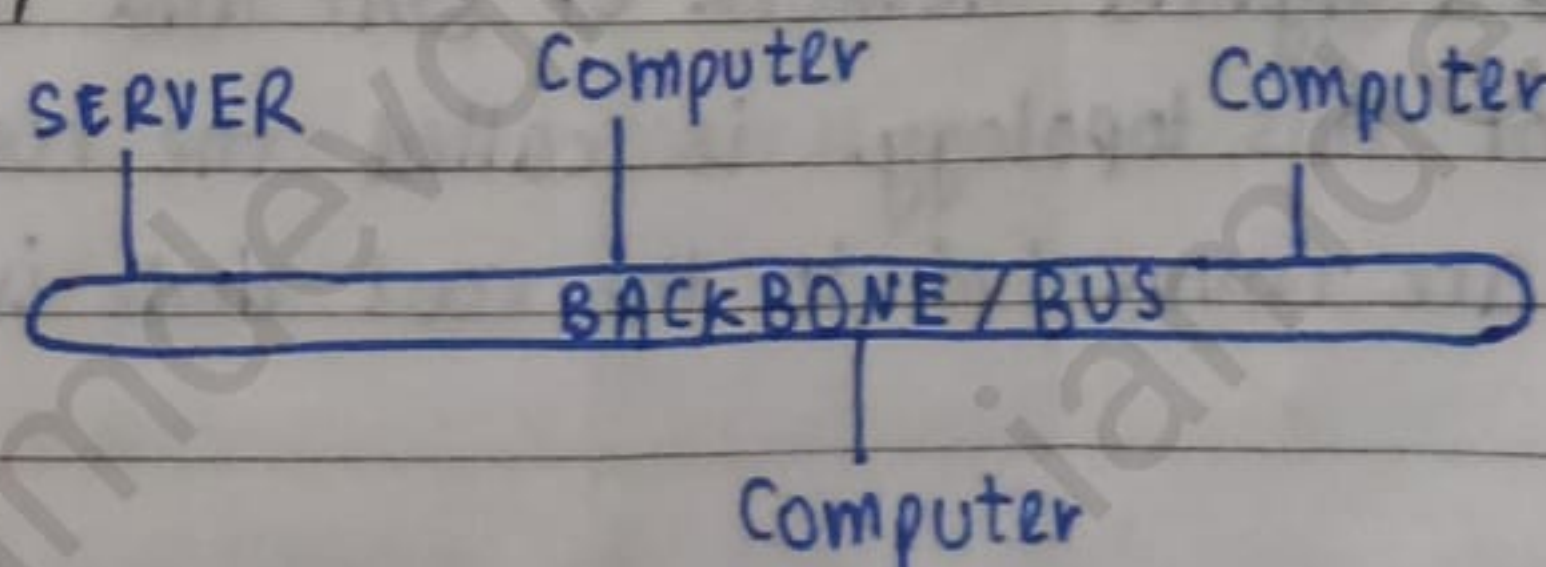 SERVER Computer Computer
BACKBONE / BUS
Computer